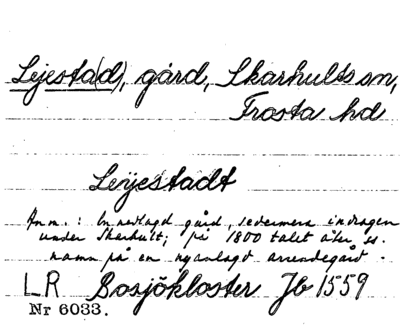 Lejesta(d), gård, Skarhults sn,
Frosta hd
Leijestadt
Anm.: En nedlagd gård, sedermera indragen
under Skarhult; på 1800 talet åter ss.
namn på en nyanlagd arrendegård.
LR Bosjökloster Jb 1559
Nr 6033.